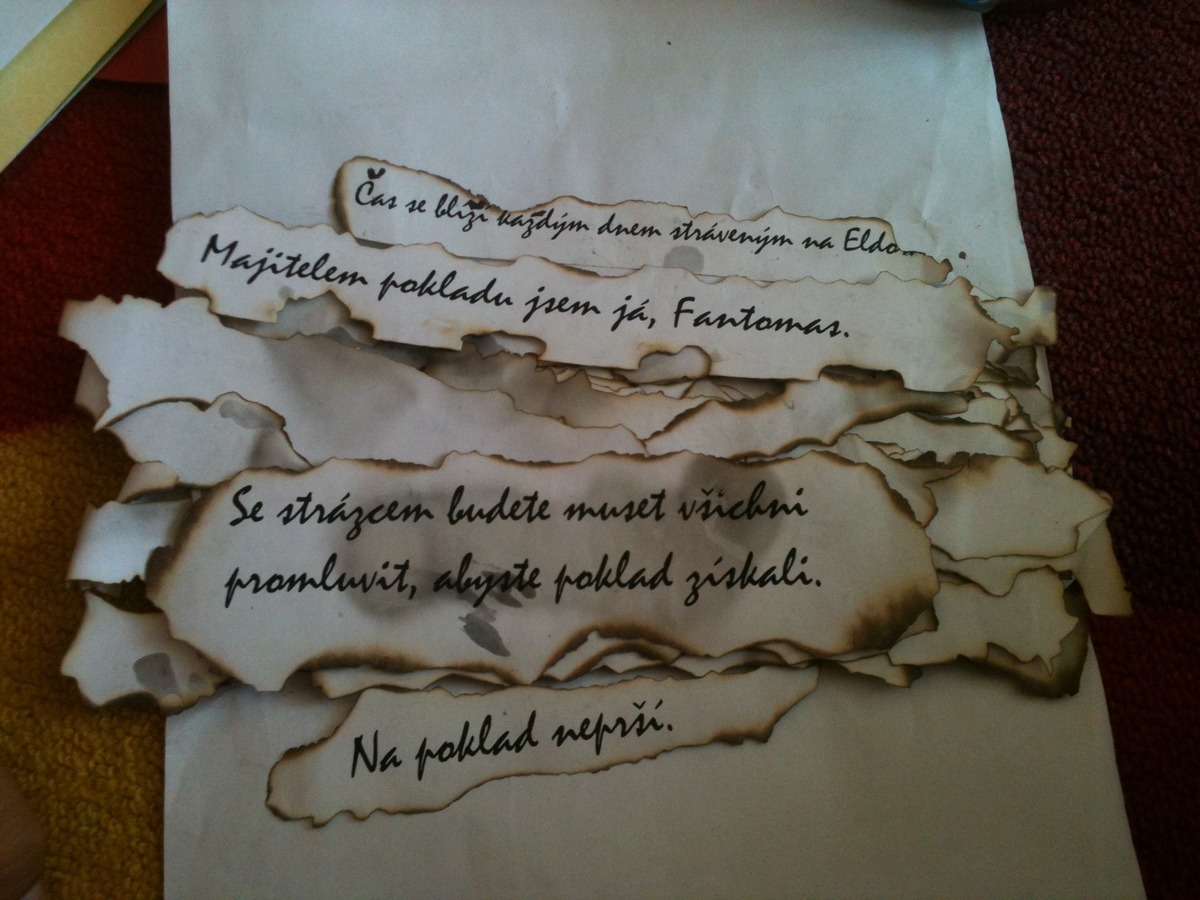 Čas se blíží každým dnem stráveným na
Majitelem pokladu jsem já, Fantomas.
Se strázcem budete muset všichni
promluvit, abyste poklad získali.
Na poklad neprší.